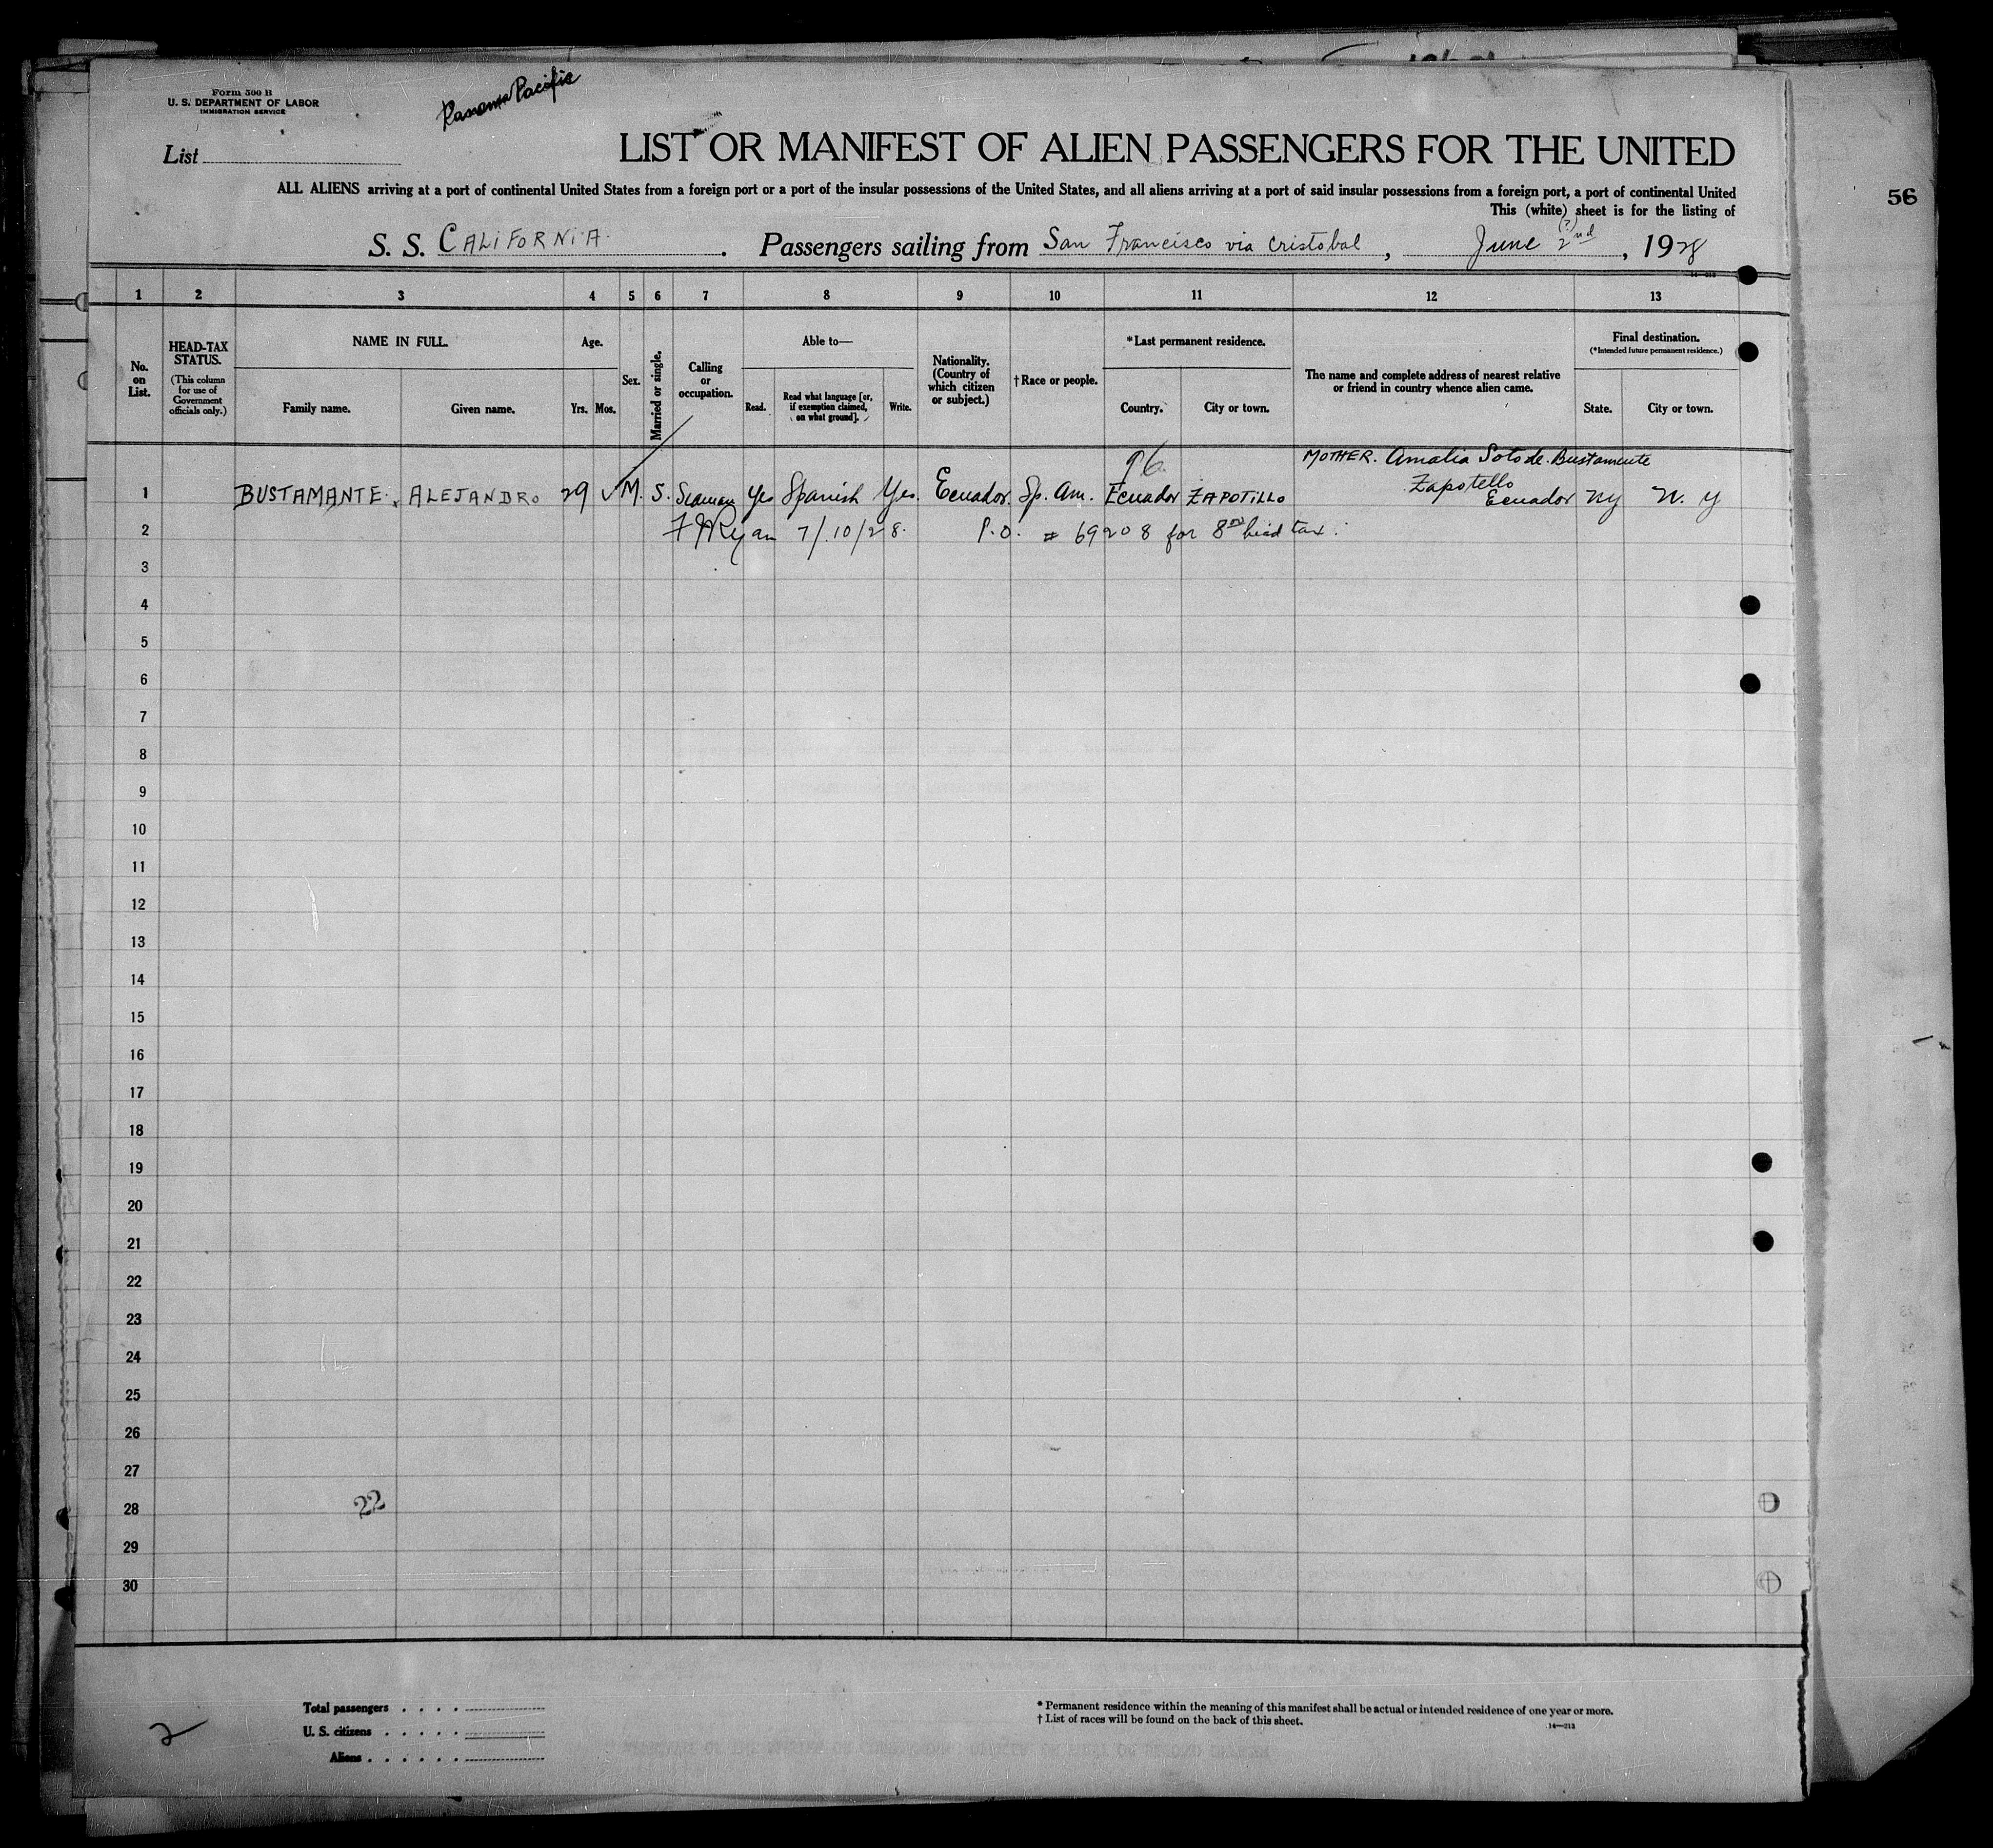 Form 500 B
U. S. DEPARTMENT OF LABOR
IMMIGRATION SERVICE
Panama Pacific
List
LIST OR MANIFEST OF ALIEN PASSENGERS FOR THE UNITED
ALL ALIENS arriving at a port of continental United States from a foreign port or a port of the insular possessions of the United States, and all aliens arriving at a port of said insular possessions from a foreign port, a port of continental United
This (white) sheet is for the listing of
56
S. S. CALIFORNIA. Passengers sailing from San Francisco via Cristobal, June 2nd, 1928
14-213
1 2 3 4 5 6 7 8 9 10 11 12 13
No. on List.
HEAD-TAX STATUS.
(This column for use of Government officials only.)
NAME IN FULL.
Family name. Given name.
Age.
Yrs. Mos.
Sex.
Married or single.
Calling or occupation.
Able to—
Read. Read what language [or, if exemption claimed, on what ground]. Write.
Nationality. (Country of which citizen or subject.)
†Race or people.
*Last permanent residence.
Country. City or town.
The name and complete address of nearest relative or friend in country whence alien came.
Final destination.
(*Intended future permanent residence.)
State. City or town.
96
MOTHER. Amalia Soto de Bustamente
Zapotello
1 BUSTAMANTE. ALEJANDRO 29 ✓ M. S. Seaman Yes Spanish Yes. Ecuador. Sp. Am. Ecuador ZAPOTILLO Ecuador NY N. Y
2 7/10/28. P.O. # 69208 for 8 00 head tax.
3
4
5
6
7
8
9
10
11
12
13
14
15
16
17
18
19
20
21
22
23
24
25
26
27
28 22
29
30
Total passengers . . . .
U. S. citizens . . . . .
Aliens . . . . . .
* Permanent residence within the meaning of this manifest shall be actual or intended residence of one year or more.
† List of races will be found on the back of this sheet.
14—213
2